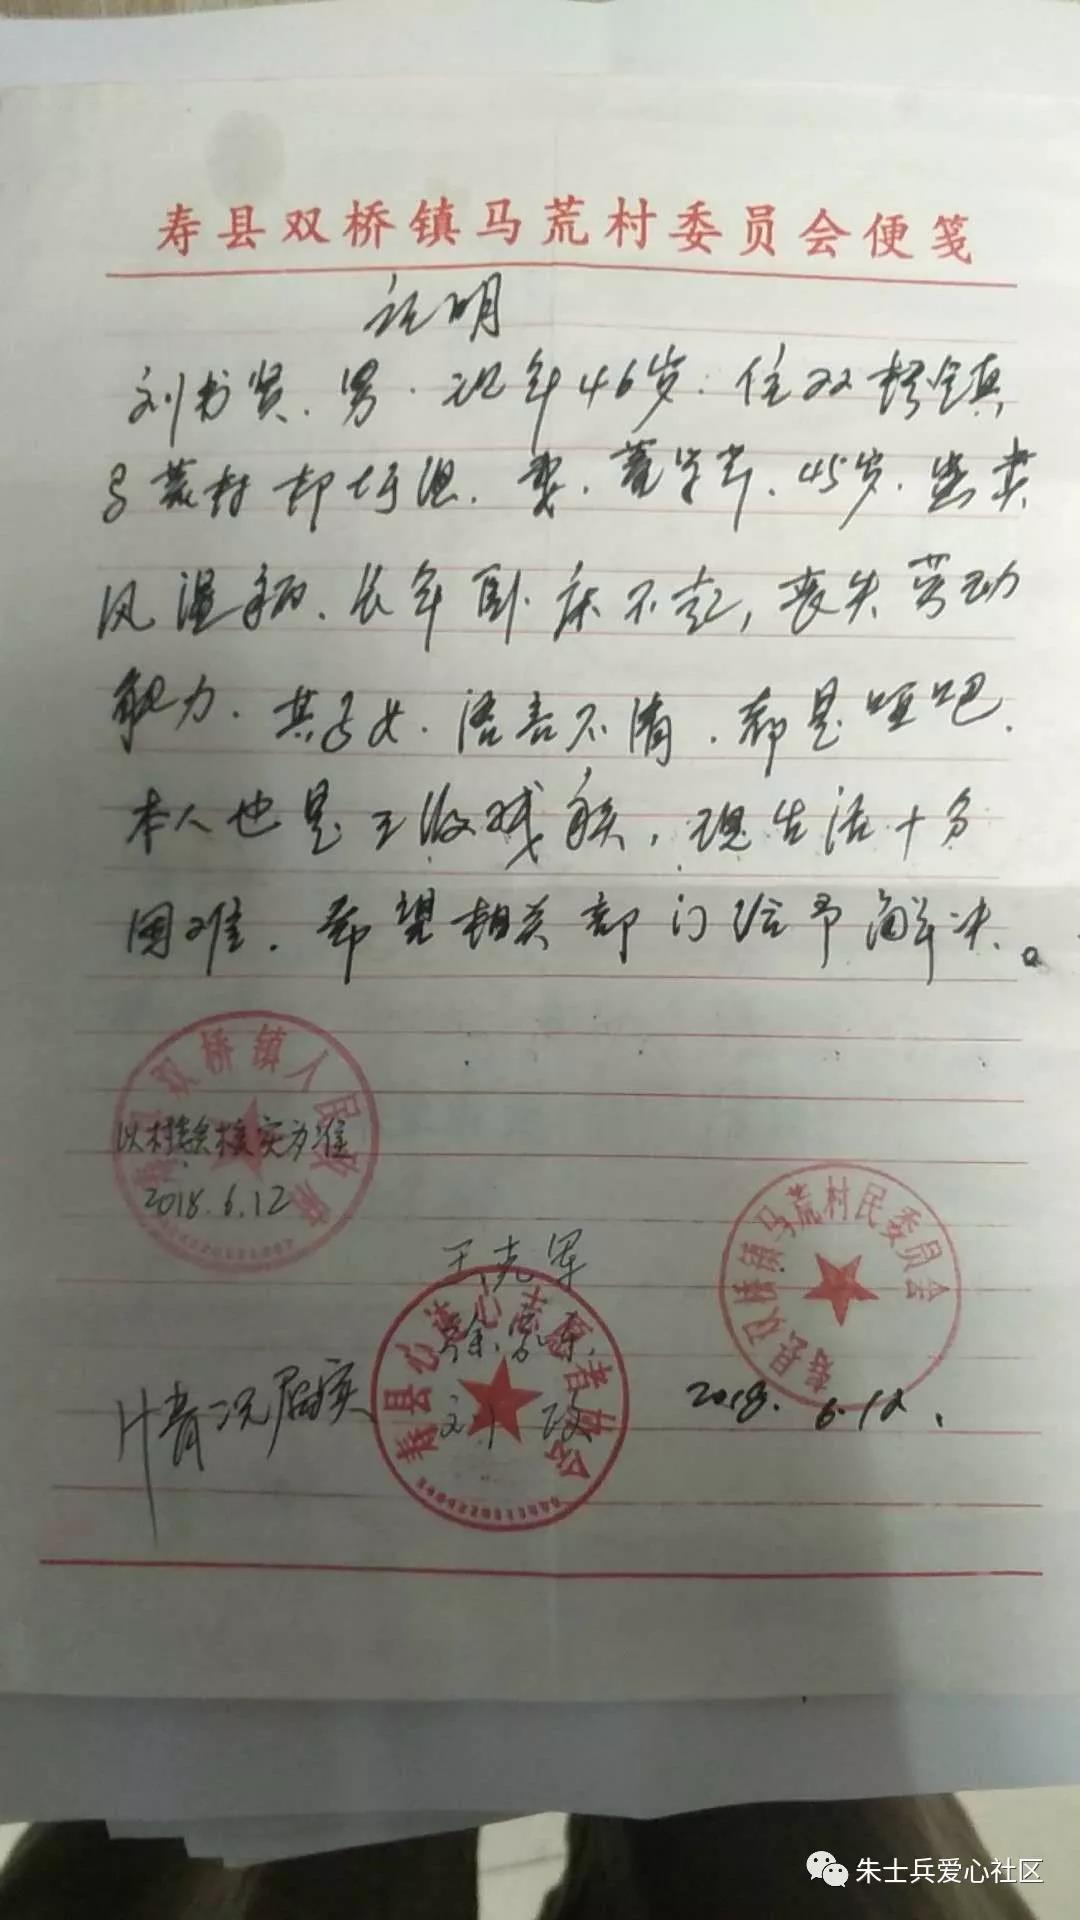 寿县双桥镇马荒村委员会便笺
证明
刘书贤、男、现年46岁、住双桥镇
马荒村郢圩组、妻、45岁、患类
风湿病、长年卧床不起，丧失劳动
能力、其子女、语言不清、都是哑巴、
本人也是三级残疾，现生活十分
困难、希望相关部门给予解决。
双桥镇人民政府
以村委会核实为准
2018.6.12
寿县双桥镇马荒村民委员会
2018.6.12.
王克军
寿县心连心志愿者协会
情况属实
朱士兵爱心社区